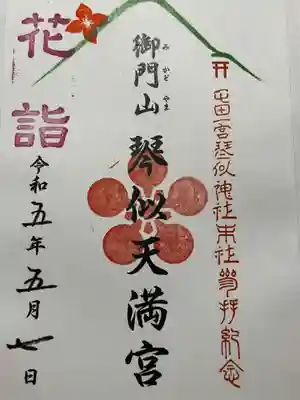 屯田一宮琴似神社末社参拝紀念
御門山琴似天満宮
みかどやま
花詣
令和五年五月七日